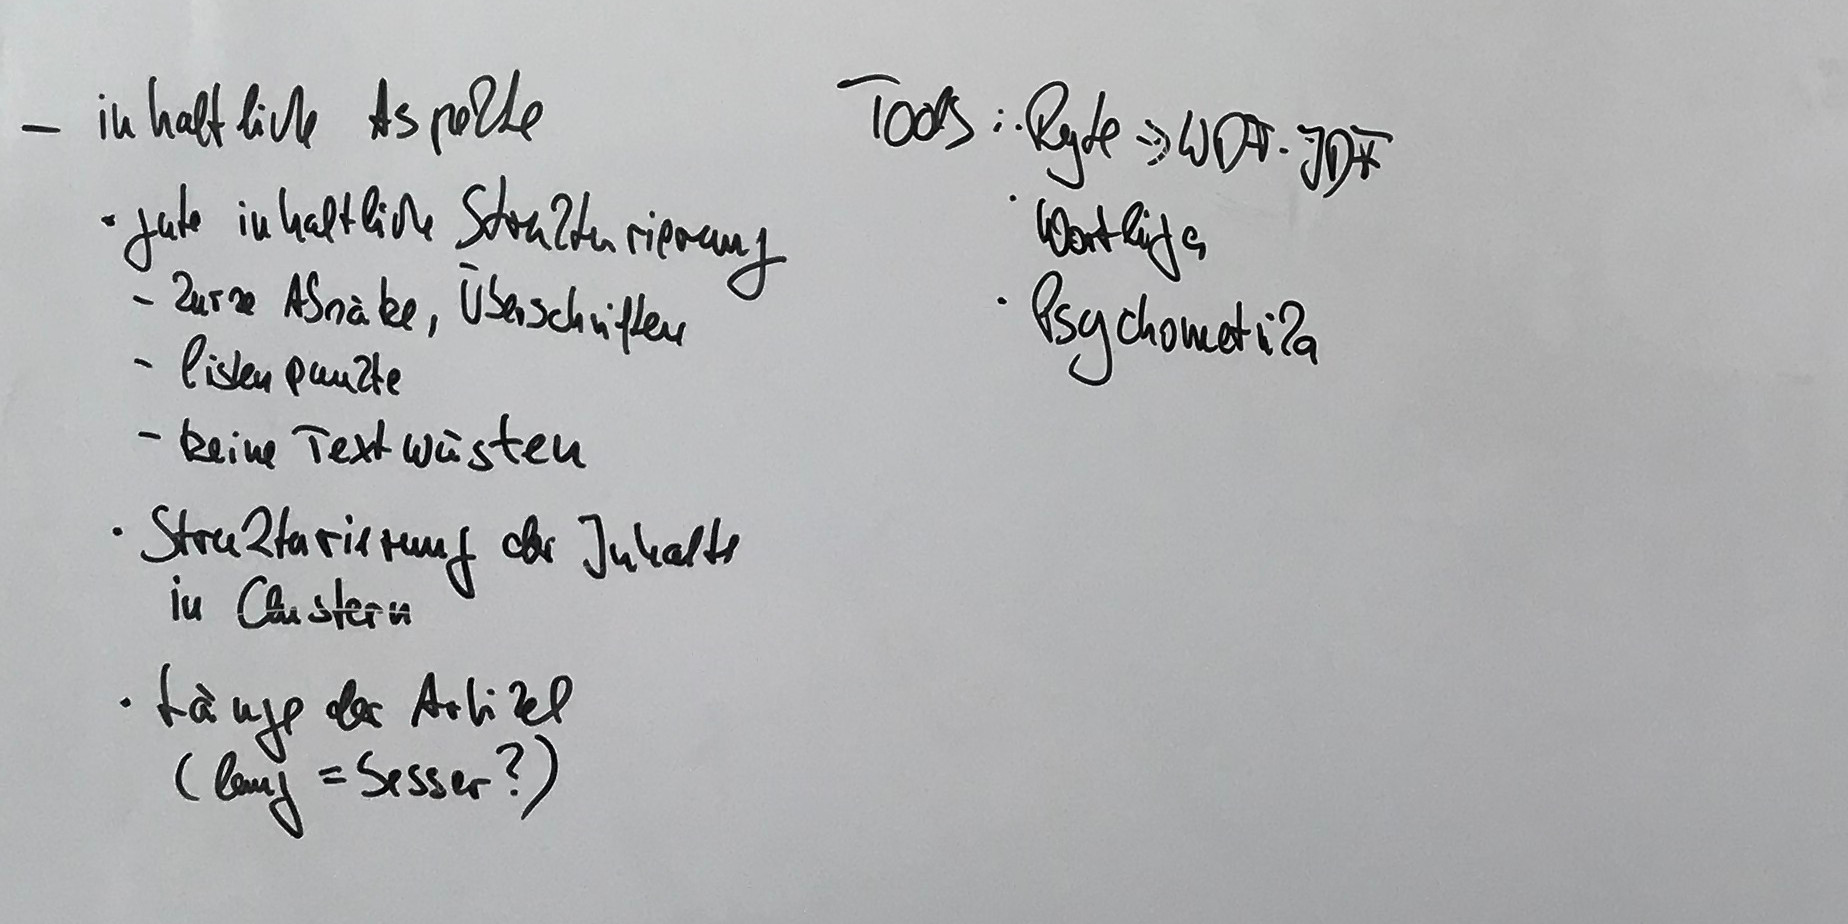 – inhaltliche Aspekte
• gute inhaltliche Strukturierung
- kurze Absätze, Überschriften
- Listenpunkte
- keine Textwüsten
• Strukturierung der Inhalte
in Clustern
• Länge der Artikel
(lang = besser?)
Tools: • Ryte => WDF·IDF
• Wortliga
• Psychometrika